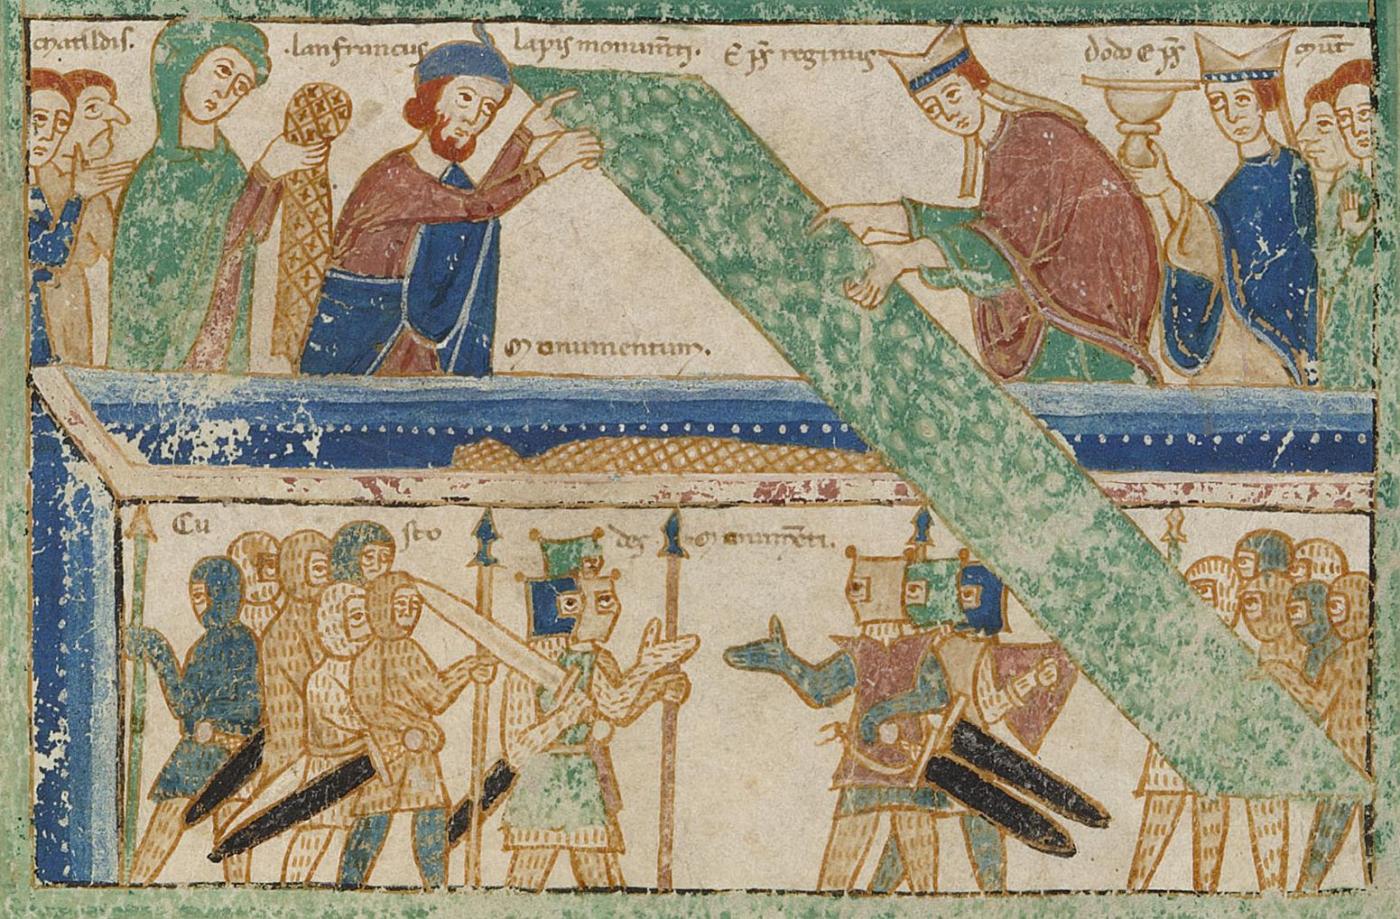 matildis. .lanfrancus lapis monumti. Eps reginus dodo eps mut
Monumentum.
Cu sto des Monumti.